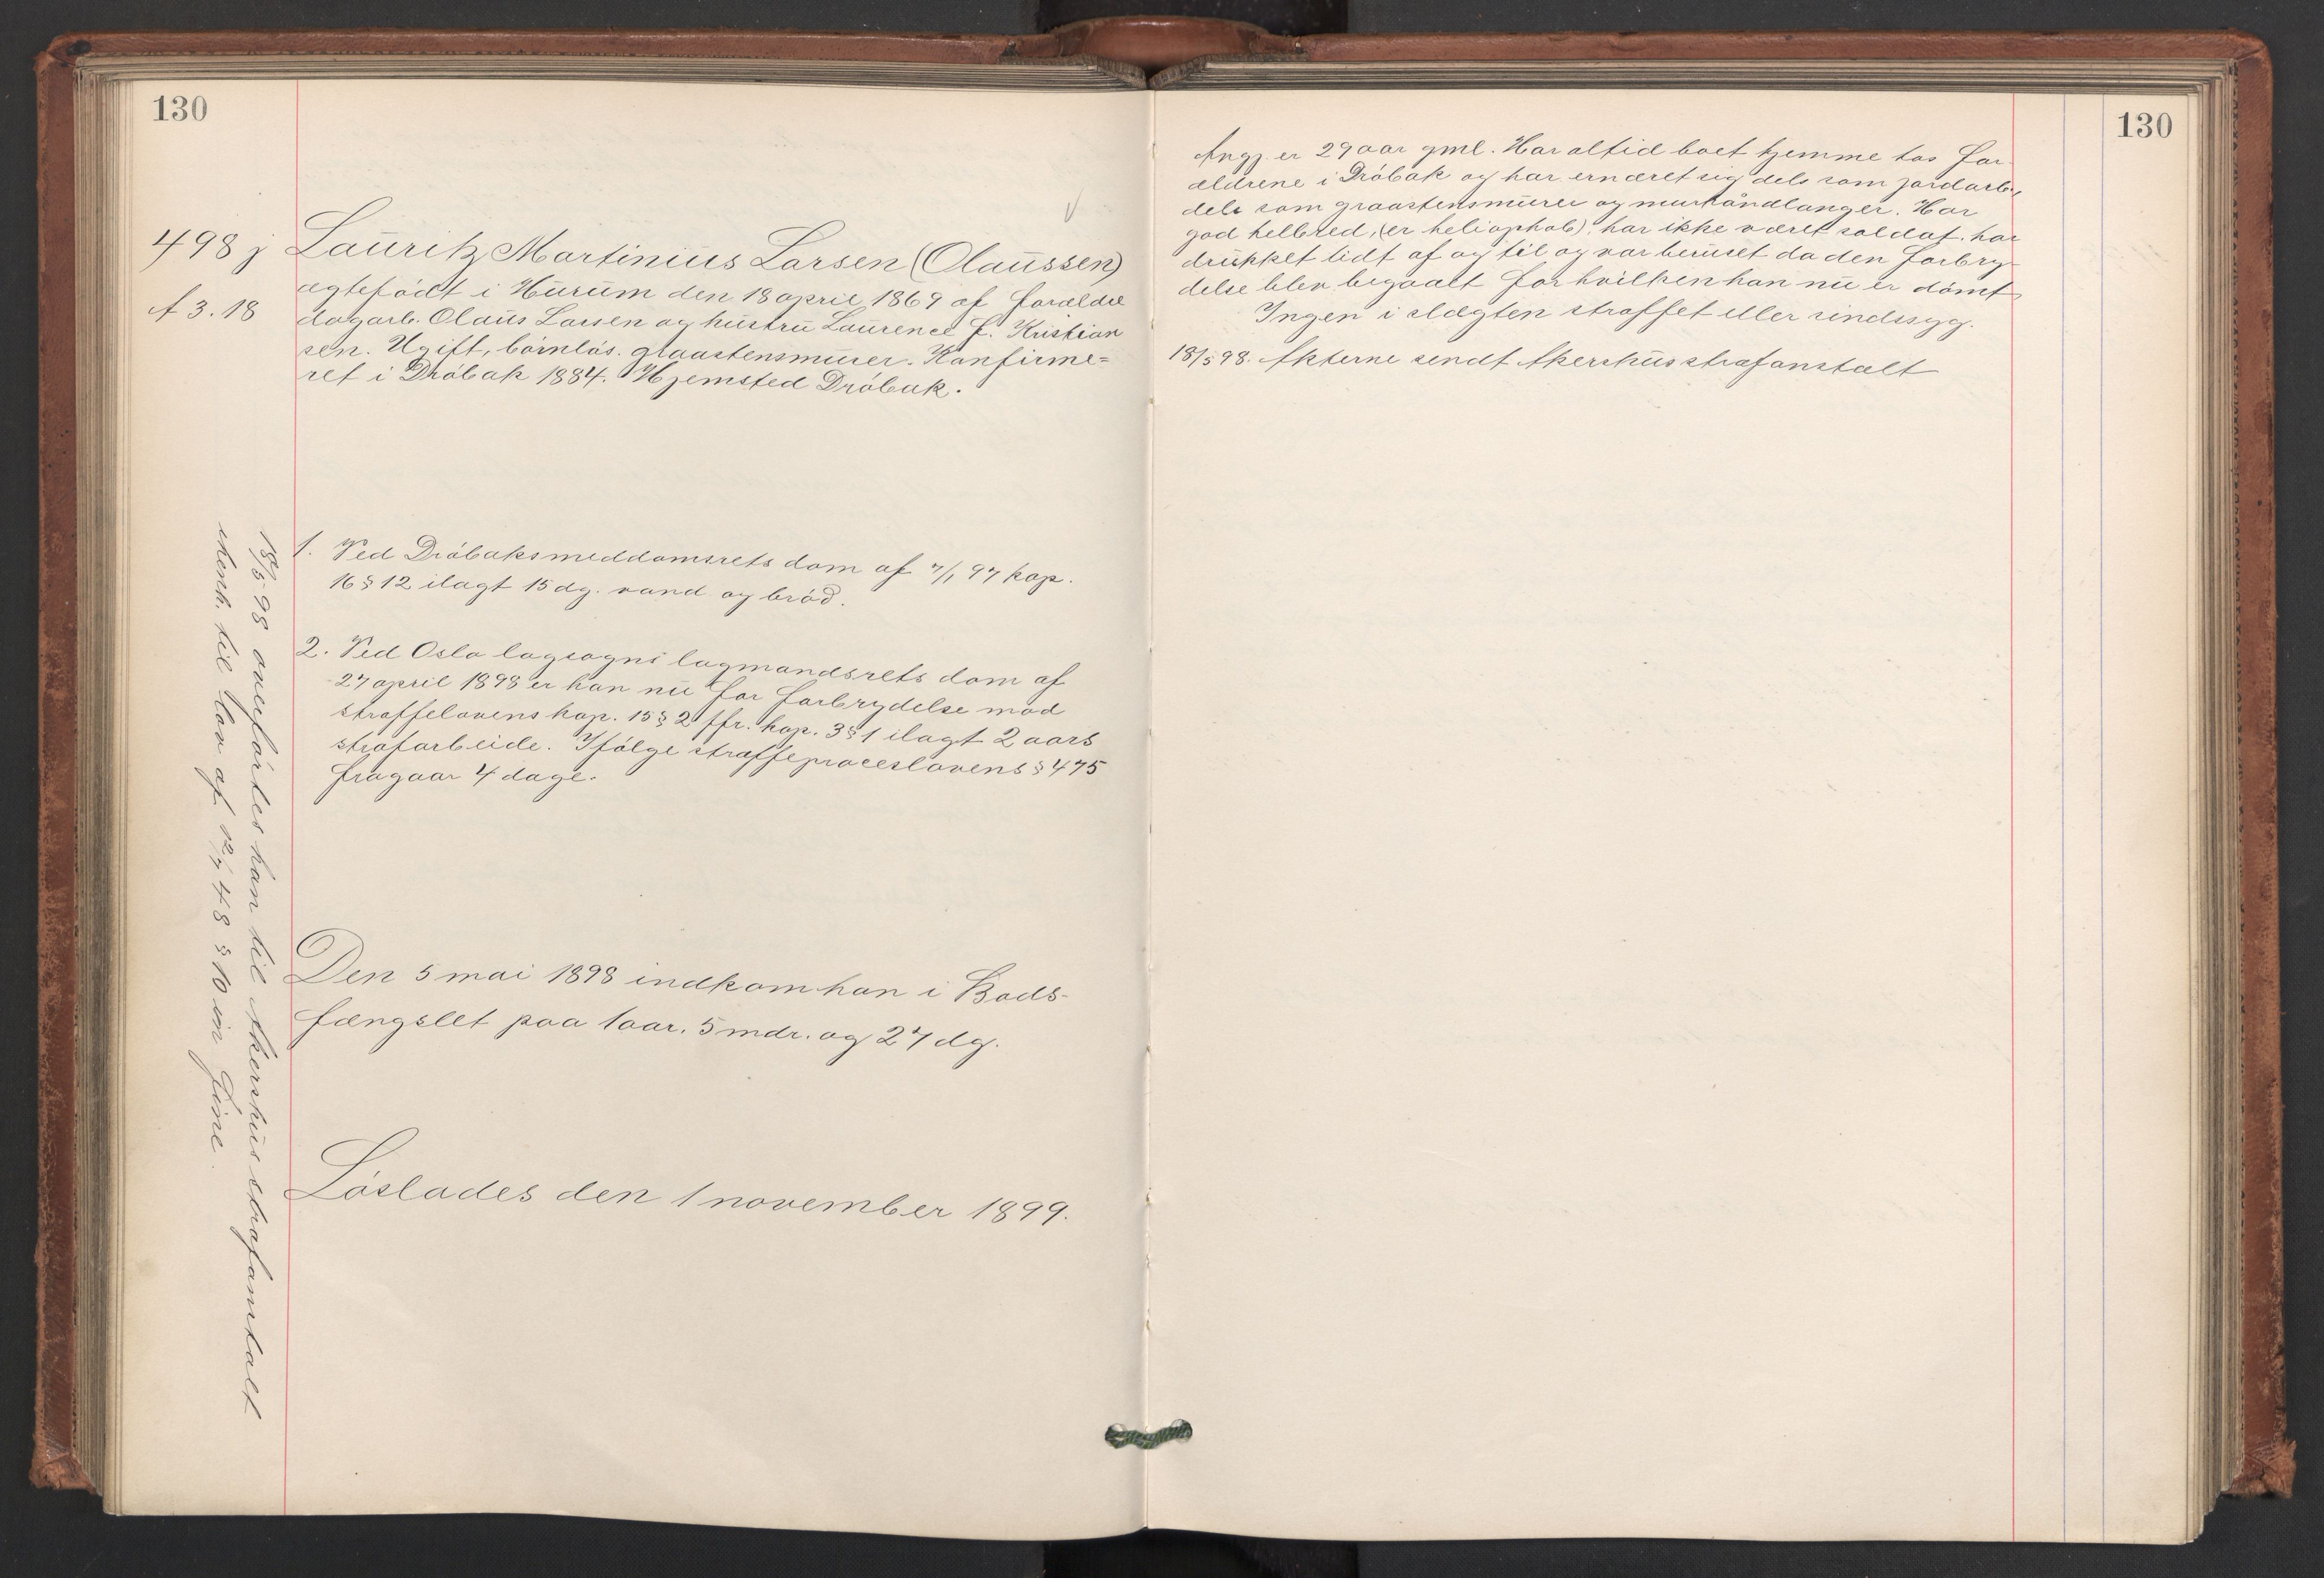 130
498 j
A 3. 18
Lauritz Martinius Larsen (Olaussen)
ægtefödt i Hurum den 18 april 1869 af forældre
dagarb. Olaus Larsen og hustru Laurence f. Kristian
sen. Ugift, börnlös. graastensmurer. Konfirme=
ret i Dröbak 1884. Hjemsted Dröbak.
1. Ved Dröbaks meddomsrets dom af 7/1 97 kap.
16 § 12 ilagt 15 dg. vand og bröd.
2. Ved Oslo lagsogns lagmandsrets dom af
27 april 1898 er han nu for forbrydelse mod
straffelovens kap. 15 § 2 jfr. kap. 3 § 1 ilagt 2 aars
strafarbeide. Ifölge straffeproceslovens § 475
fragaar 4 dage.
Den 5 mai 1898 indkom han i Bods-
fængslet paa 1 aar. 5 mdr. og 27 dg.
Löslades den 1 november 1899.
18/5 98 overförtes han til Akershus strafanstalt
ihenh. til lov af 12/7 48 § 10 in fine.
130
Angj. er 29 aar gml. Har altid boet hjemme hos for
ældrene i Dröbak og har ernæret sig dels som jordarb.,
dels som graastensmurer og murhåndlanger. Har
god helbred, (er heliophob), har ikke været soldat. har
drukket lidt af og til og var beruset da den forbry-
delse blev begaaet for hvilken han nu er dömt,
Ingen i slægten straffet eller sindssyg.
18/5 98. Akterne sendt Akershus strafanstalt